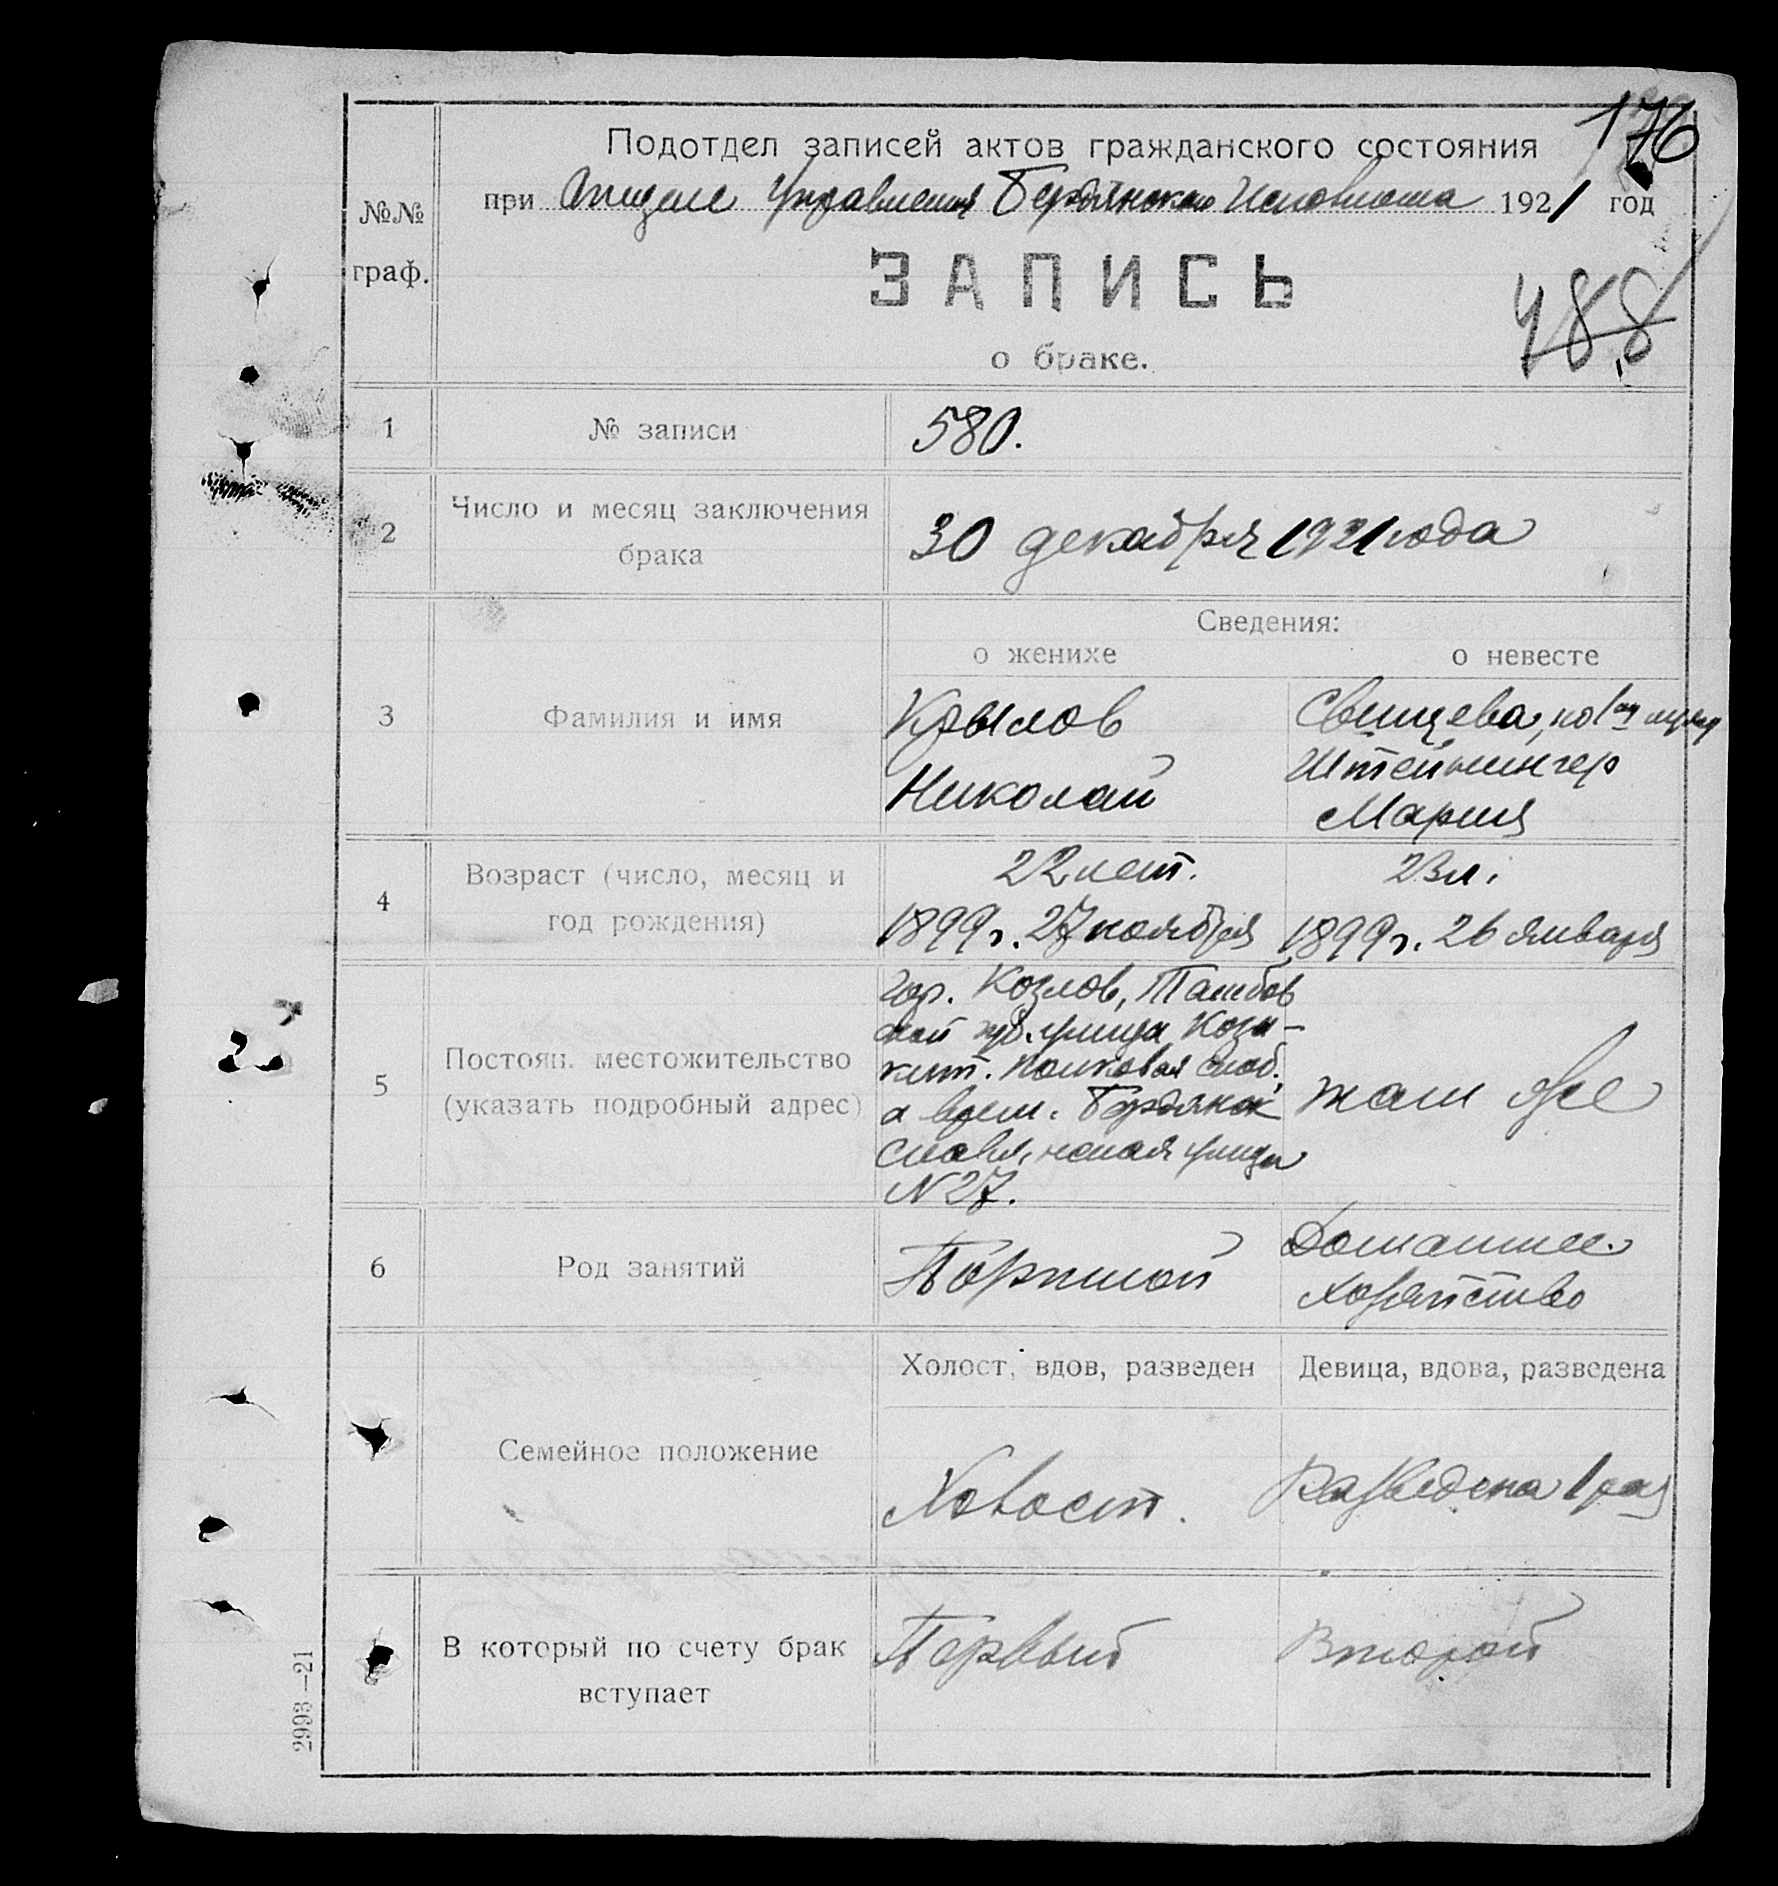 176
Подотдел записей актов гражданского состояния
при Отделе Управления Бердянского Исполкома 1921 год
№№ граф.
ЗАПИСЬ
о браке.
488
1 № записи 580.
2 Число и месяц заключения брака 30 декабря 1921 года
Сведения:
о женихе о невесте
3 Фамилия и имя
Крылов
Николай
Свищева, по 1му мужу
Штейнингер
Мария
4 Возраст (число, месяц и год рождения)
22 лет.
1899 г. 27 ноября
23 л.
1899 г. 26 января
5 Постоян. местожительство (указать подробный адрес)
гор. Козлов, Тамбов
ской губ. улица
слоб.,
а врем. Бердянск
улица
N 27.
там же
6 Род занятий
Портной
Домашнее
хозяйство
Семейное положение
Холост, вдов, разведен
Девица, вдова, разведена
Холост.
Разведена 1 раз
В который по счету брак вступает
Первый
Второй
2993—21